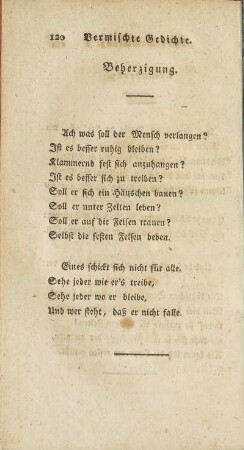 120 Vermischte Gedichte.
Beherzigung.
Ach was soll der Mensch verlangen?
Ist es besser ruhig bleiben?
Klammernd fest sich anzuhangen?
Ist es besser sich zu treiben?
Soll er sich ein Häuschen bauen?
Soll er unter Zelten leben?
Soll er auf die Felsen trauen?
Selbst die festen Felsen beben.
Eines schickt sich nicht für alle.
Sehe jeder wie er's treibe,
Sehe jeder wo er bleibe,
Und wer steht, daß er nicht falle.